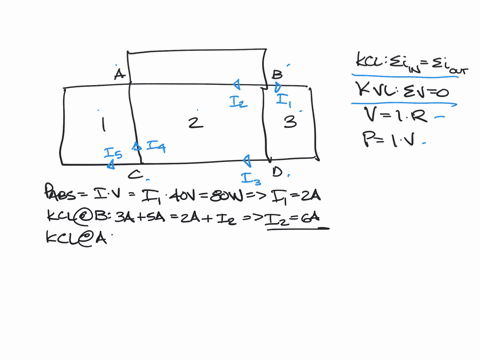 A
B
I2
I1
1
2
3
I5
I4
I3
C
D
KCL: Σi IN = Σi OUT
KVL: ΣV=0
V = I·R
P = I·V
PABS = I·V = I1·40V = 80W => I1 = 2A
KCL@B: 3A + 5A = 2A + I2 => I2 = 6A
KCL@A: